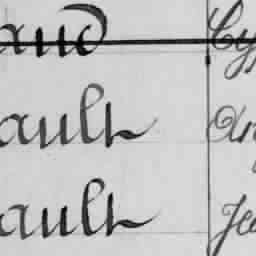 aud Cy
ault An
ault Je